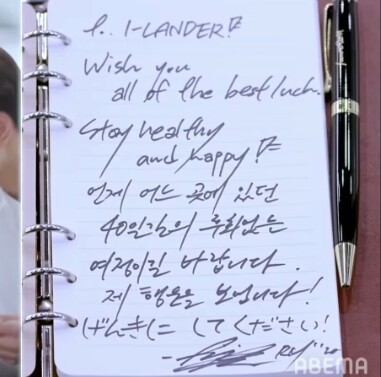 To. I-LANDER!!
Wish you
all of the best luck.
Stay healthy
and happy!!
언제 어느 곳에 있던
40일간의 후회없는
여정이길 바랍니다.
제 행운을 보냅니다!
げんきに してください!
ABEMA